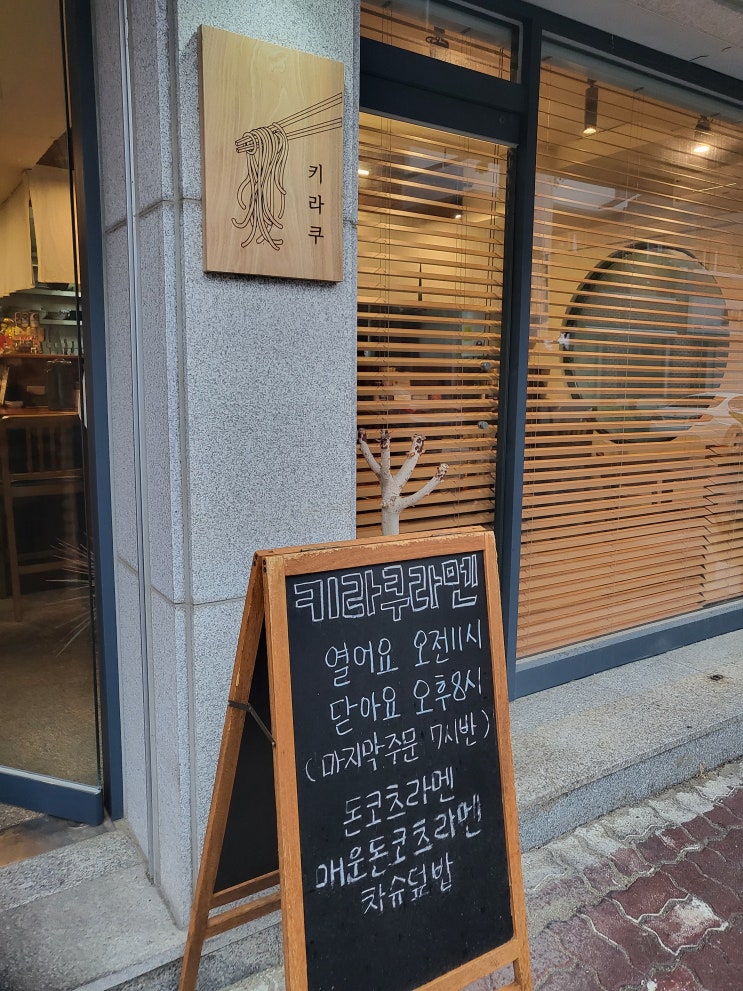 키라쿠
키라쿠라멘
열어요 오전11시
닫아요 오후8시
(마지막주문 7시반)
돈코츠라멘
매운돈코츠라멘
차슈덮밥